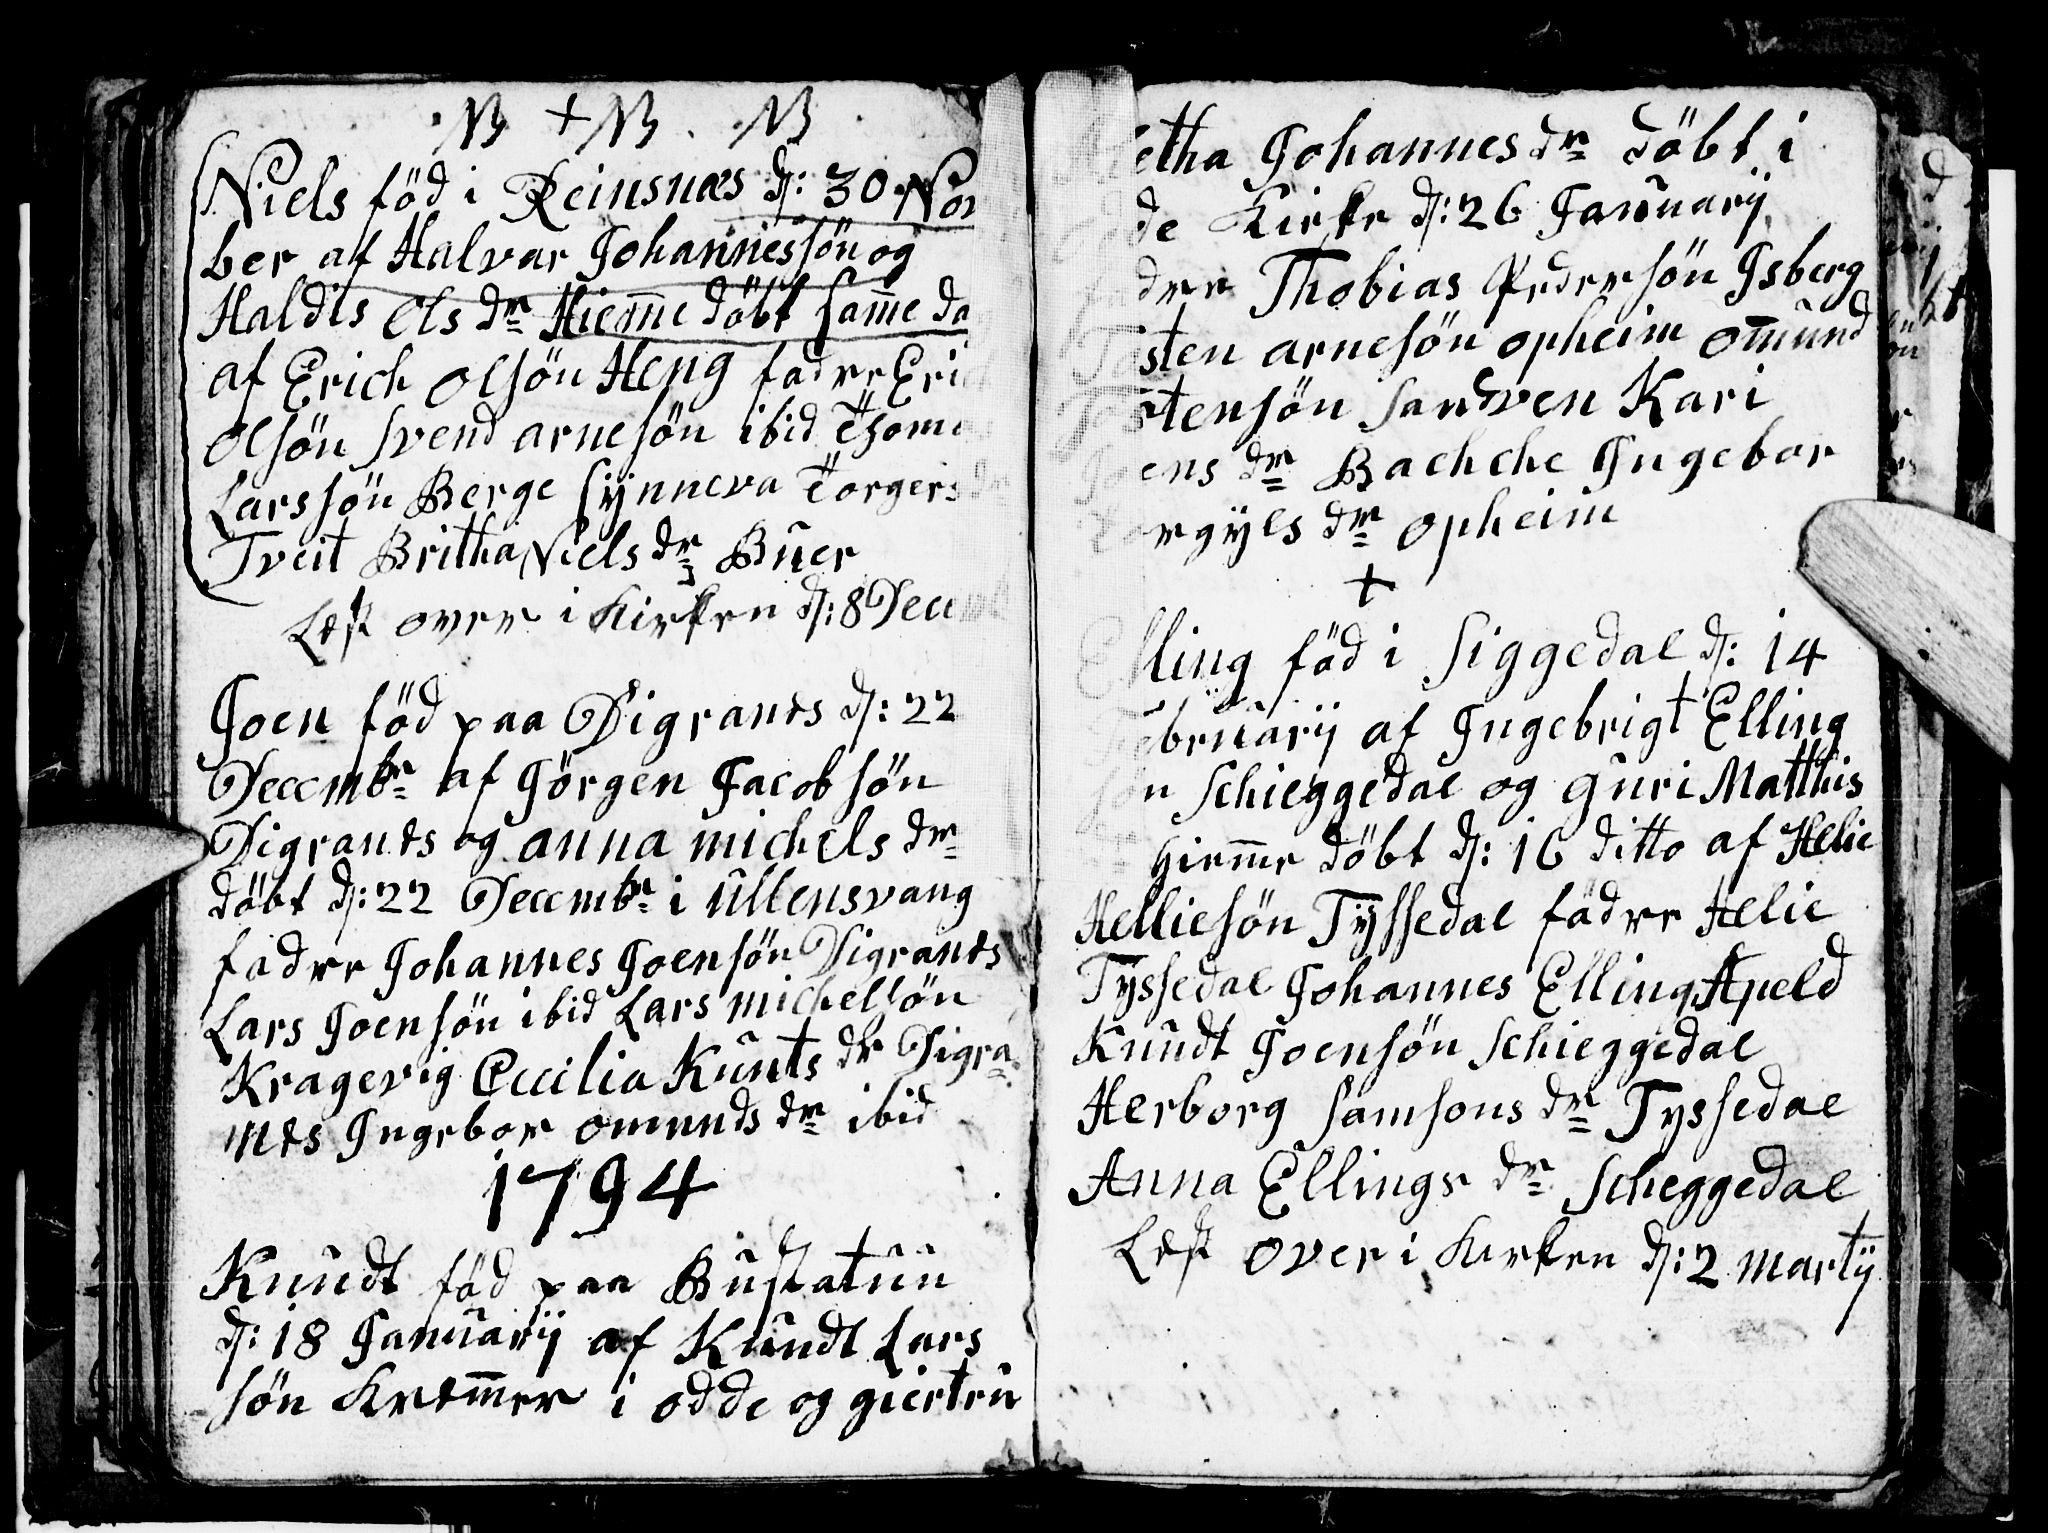 NB + NB. NB.
Niels föd i Reinsnæs d: 30 Nov
ber af Halvar Johannessön og
Haldis Ols dr Hiem̄e döbt sam̄e da
af Erich Olsön Heng fadre Eric
Olsön Svend arnesön ibid Thoma
Larssön Berge Synneva Torgers dr
Tveit Britha Niels dr Buer
Læst over i Kirken d: 8 Decemb
Joen föd paa Digranes d: 22
Decembr af Jörgen Jacobsön
Digranes og anna michels dr
döbt d: 22 Decembr i Ullensvang
fadre Johannes Joensön Digranes
Lars Joensön ibid Lars michelsön
Kragevig Cecilia Kunts dr Digra
nes Ingebor omunds dr ibid
1794
Knudt föd paa Bustatun
d: 18 Januarij af Knudt Lars
sön Krem̄er i odde og giertru
etha Johannes dr döbt i
de Kirke d: 26 Januarij
dre Thobias Pedersön Isberg
Tosten arnesön opheim om̄und
stensön Sandven Kari
ens dr Bachche Ingebor
orgyls dr opheim
+
Elling föd i Siggedal d: 14
Februarij af Ingebrigt Elling
sön Schieggedal og guri Matthis
Hiem̄e döbt d: 16 ditto af Helie
Helliesön Tyssedal fadre Helie
Tyssedal Johannes Elling Apeld
Knudt Joensön Schieggedal
Herborg Samsons dr Tyssedal
Anna Ellings dr Scheggedal
Læst over i Kirken d: 2 martij